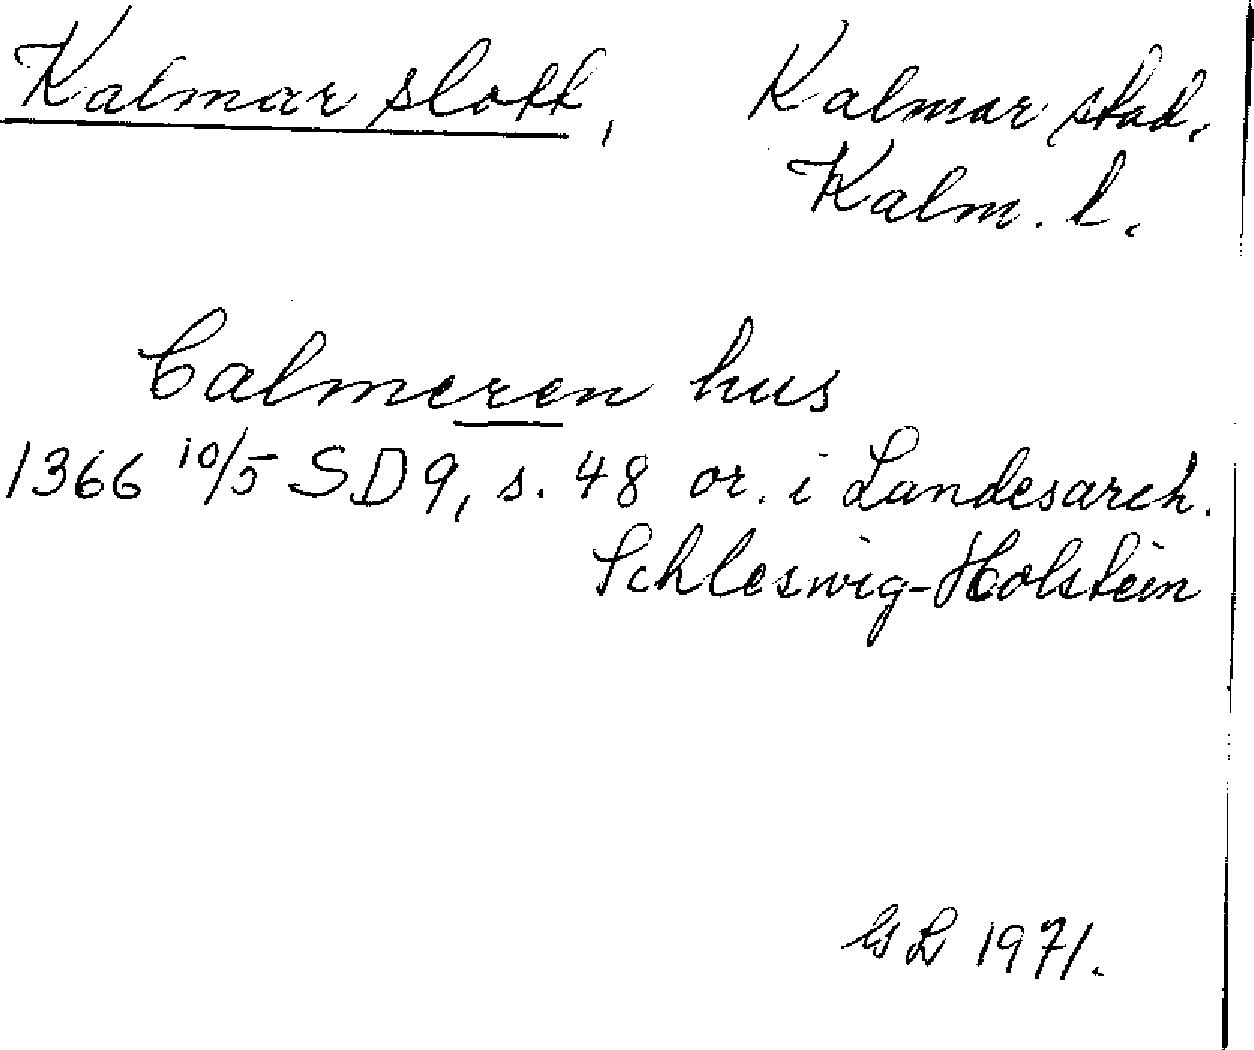 Kalmar slott, Kalmar stad.
Kalm. l.
Calmeren hus
1366 10/5 SD 9, s. 48 or. i Landesarch.
Schleswig-Holstein
GL 1971.